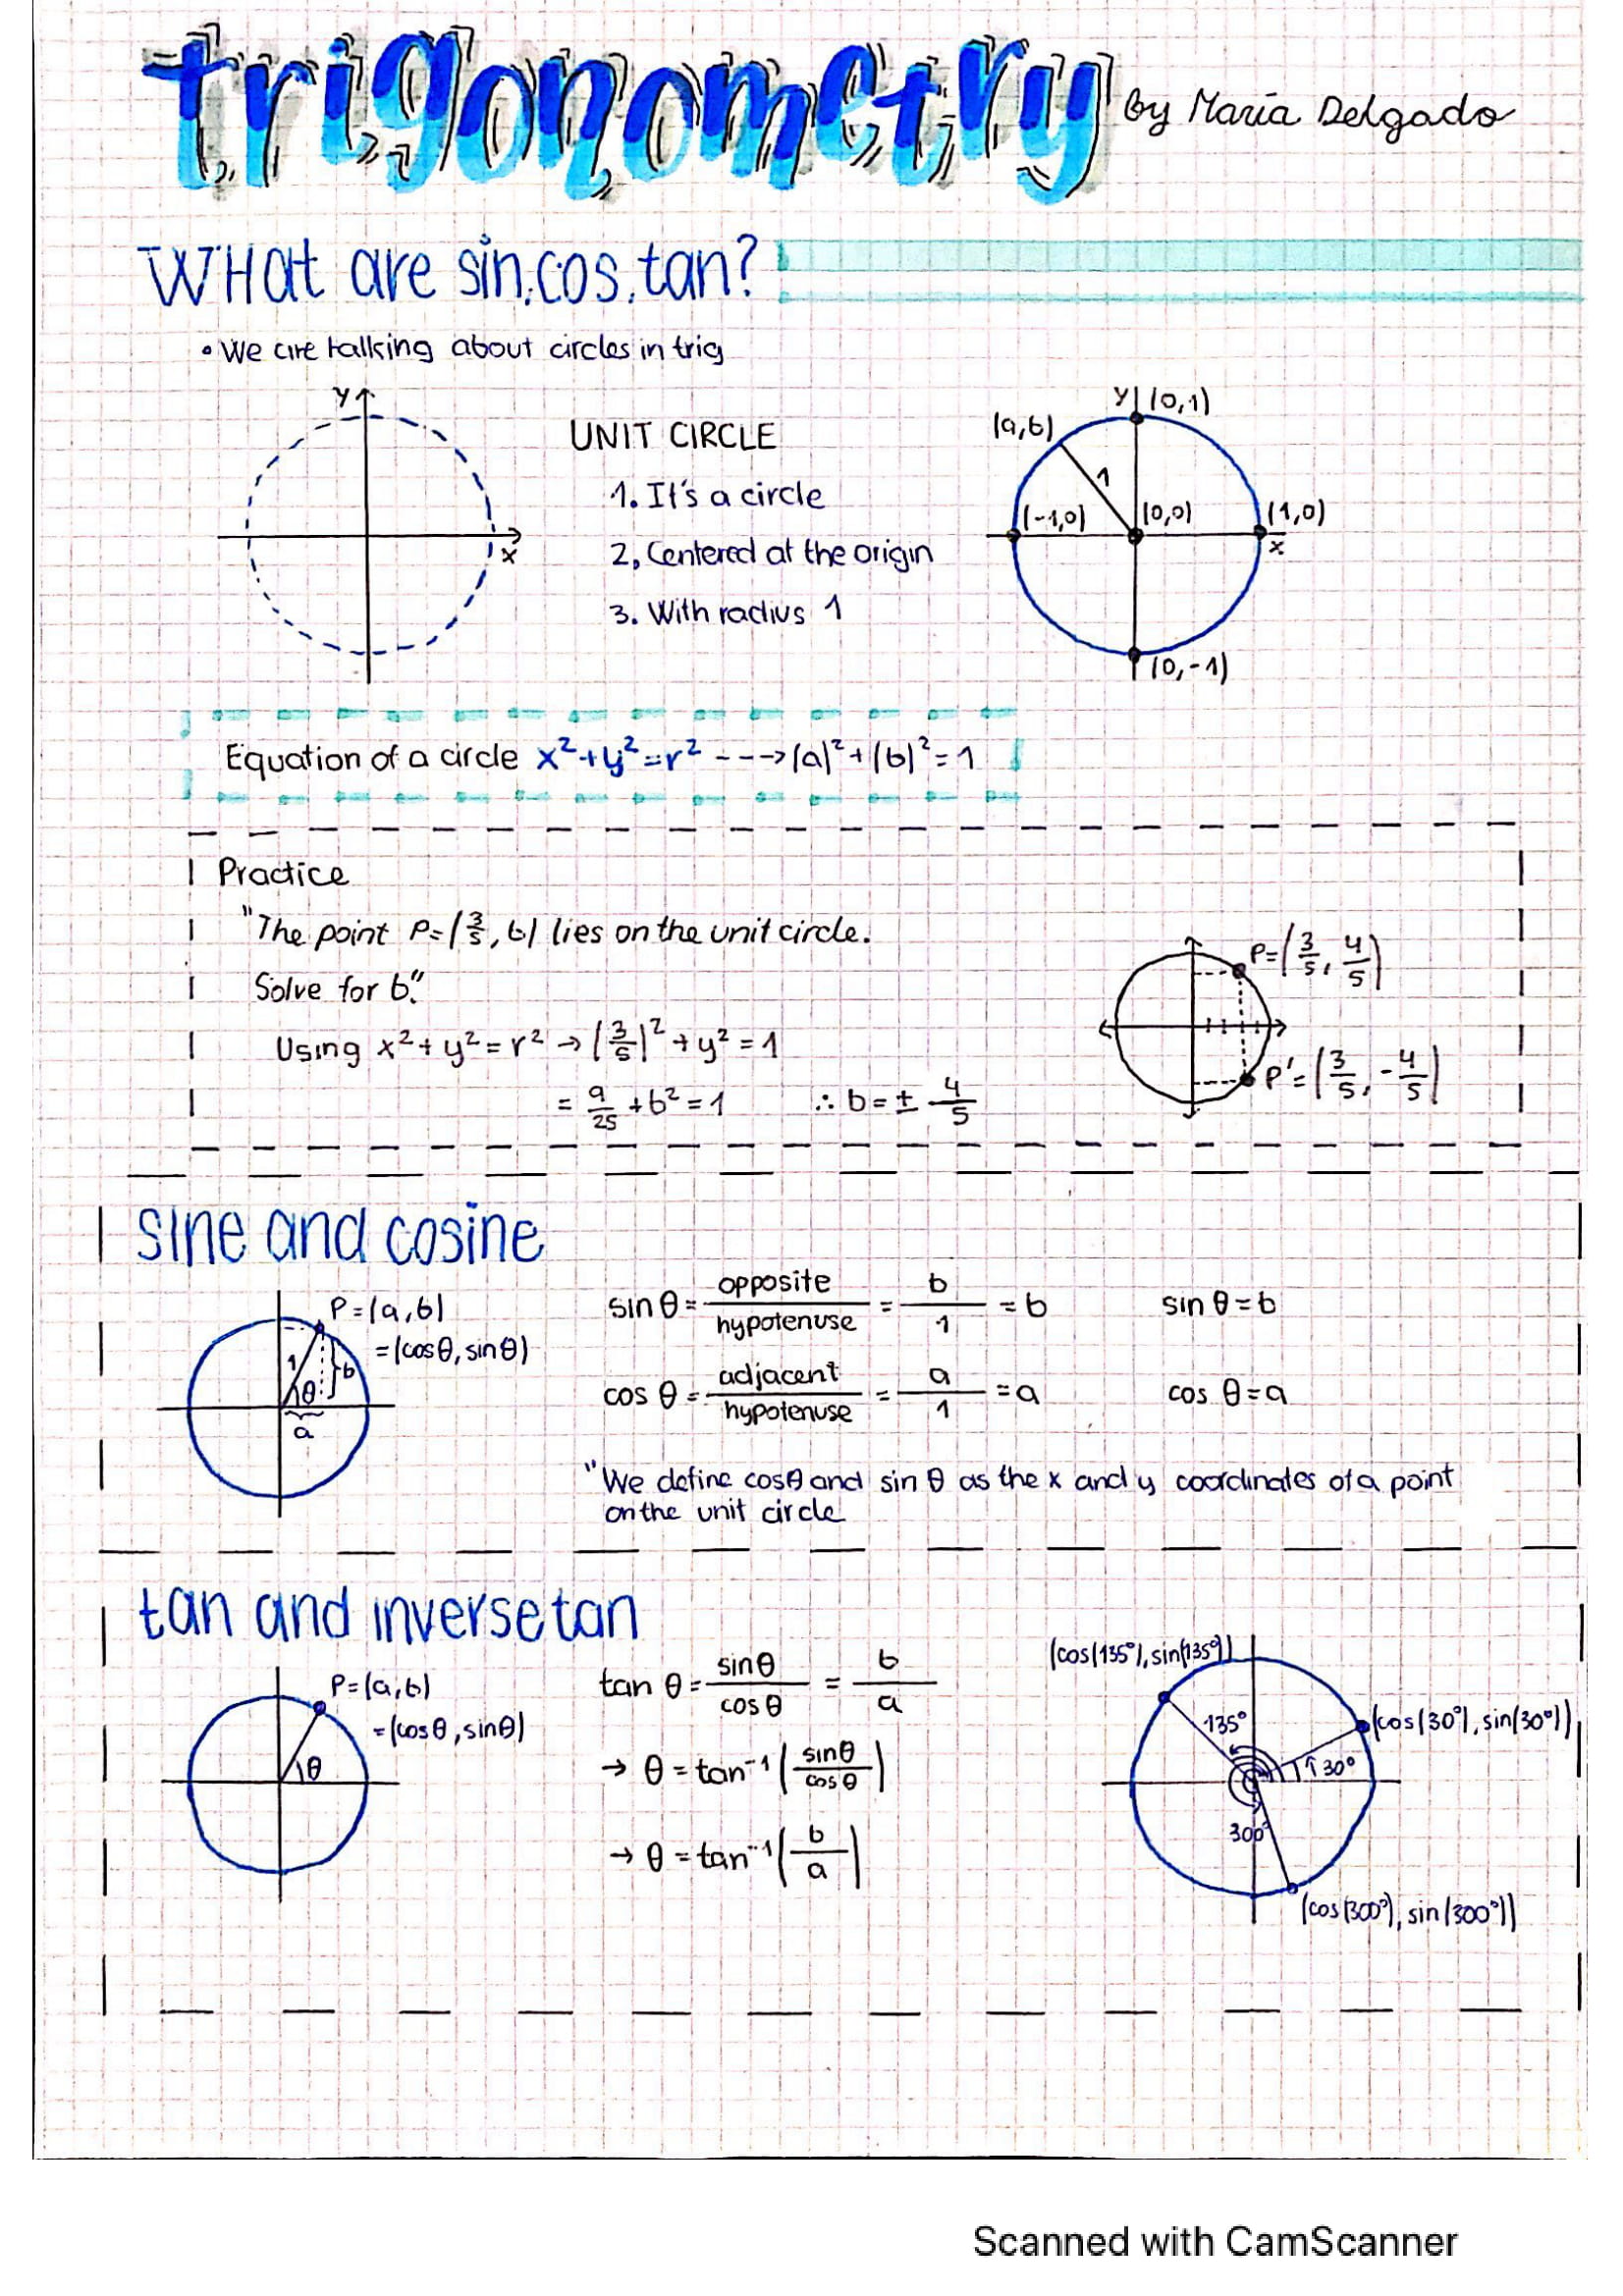 trigonometry by María Delgado
What are sin, cos, tan?
• We are talking about circles in trig
y
x
UNIT CIRCLE
1. It's a circle
2. Centered at the origin
3. With radius 1
y (0,1)
(a,b)
1
(-1,0) (0,0) (1,0)
x
(0,-1)
Equation of a circle x²+y²=r² ---> (a)²+(b)²=1
Practice
"The point P=(3/5, b) lies on the unit circle.
Solve for b."
Using x²+y²=r² → (3/5)²+y²=1
= 9/25 +b²=1 ∴ b=± 4/5
P=(3/5, 4/5)
P'=(3/5, -4/5)
sine and cosine
P=(a,b)
=(cosθ, sinθ)
1 θ b
a
sin θ = opposite/hypotenuse = b/1 = b sin θ = b
cos θ = adjacent/hypotenuse = a/1 = a cos θ = a
"We define cosθ and sin θ as the x and y coordinates of a point
on the unit circle
tan and inverse tan
P=(a,b)
=(cosθ, sinθ)
θ
tan θ = sinθ/cosθ = b/a
→ θ = tan⁻¹(sinθ/cosθ)
→ θ = tan⁻¹(b/a)
(cos(135°), sin(135°))
135°
(cos(30°), sin(30°))
30°
300°
(cos(300°), sin(300°))
Scanned with CamScanner